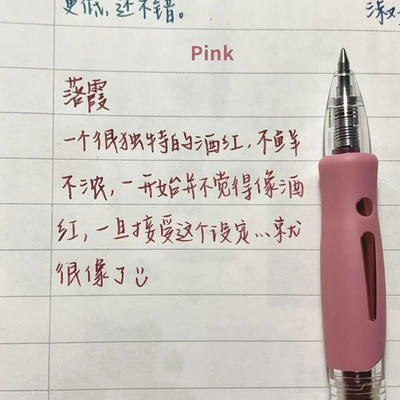 更低，还不错。
Pink
落霞
一个很独特的酒红，不鲜
不浓，一开始并不觉得像酒
红，一旦接受这个设定…就
很像了